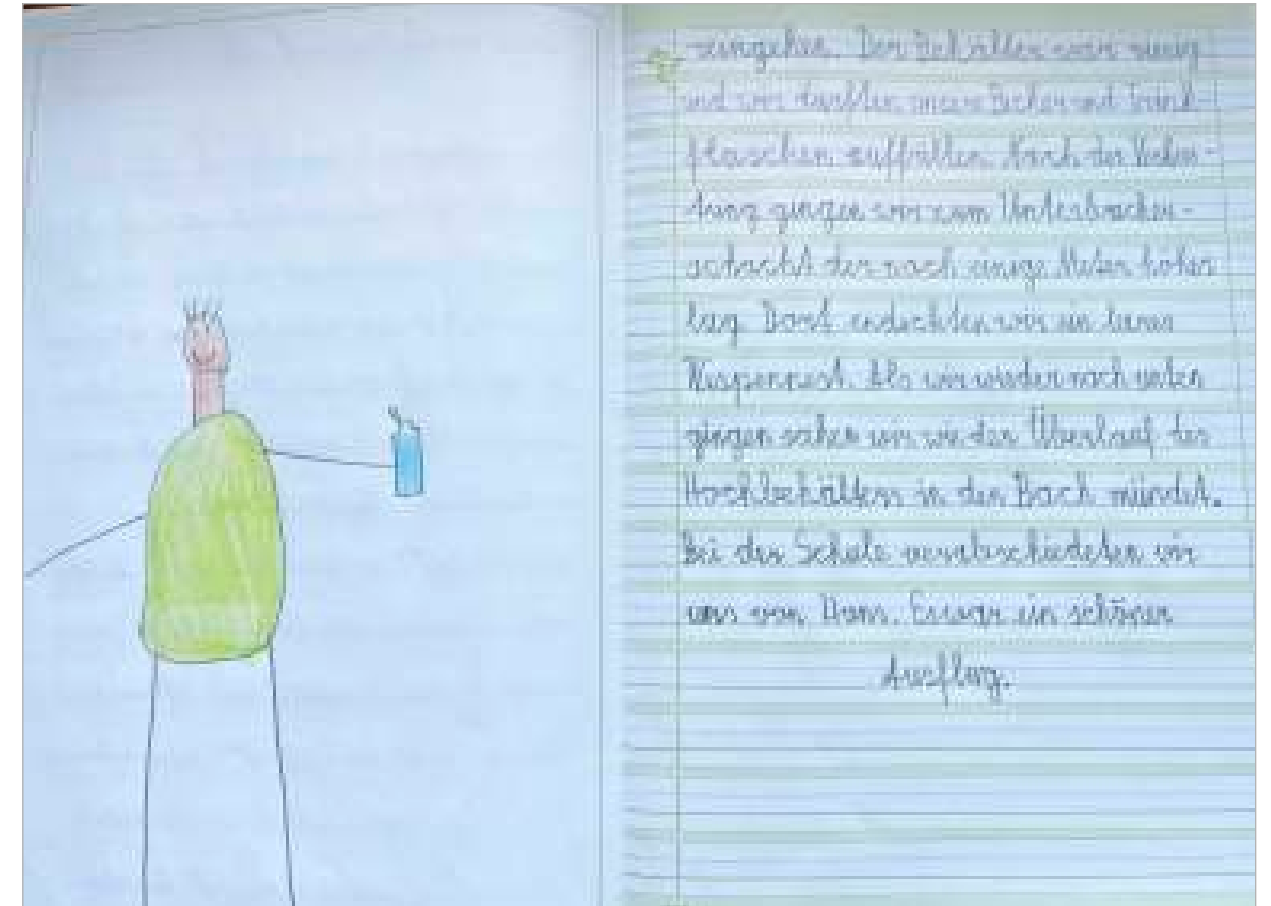 reingehen. Der Behälter war riesig
und wir durften unsere Becher und Trink-
flaschen auffüllen. Nach der
tung gingen wir zum Unterbrecher-
schacht der noch einige Meter höher
lag. Dort endeckten wir ein leeres
Wespennest. Als wir wieder nach unten
gingen sahen wir wie der Überlauf des
Hochbehälters in den Bach mündet.
Bei der Schule verabschiedeten wir
uns von Hans. Es war ein schöner
Ausflug.